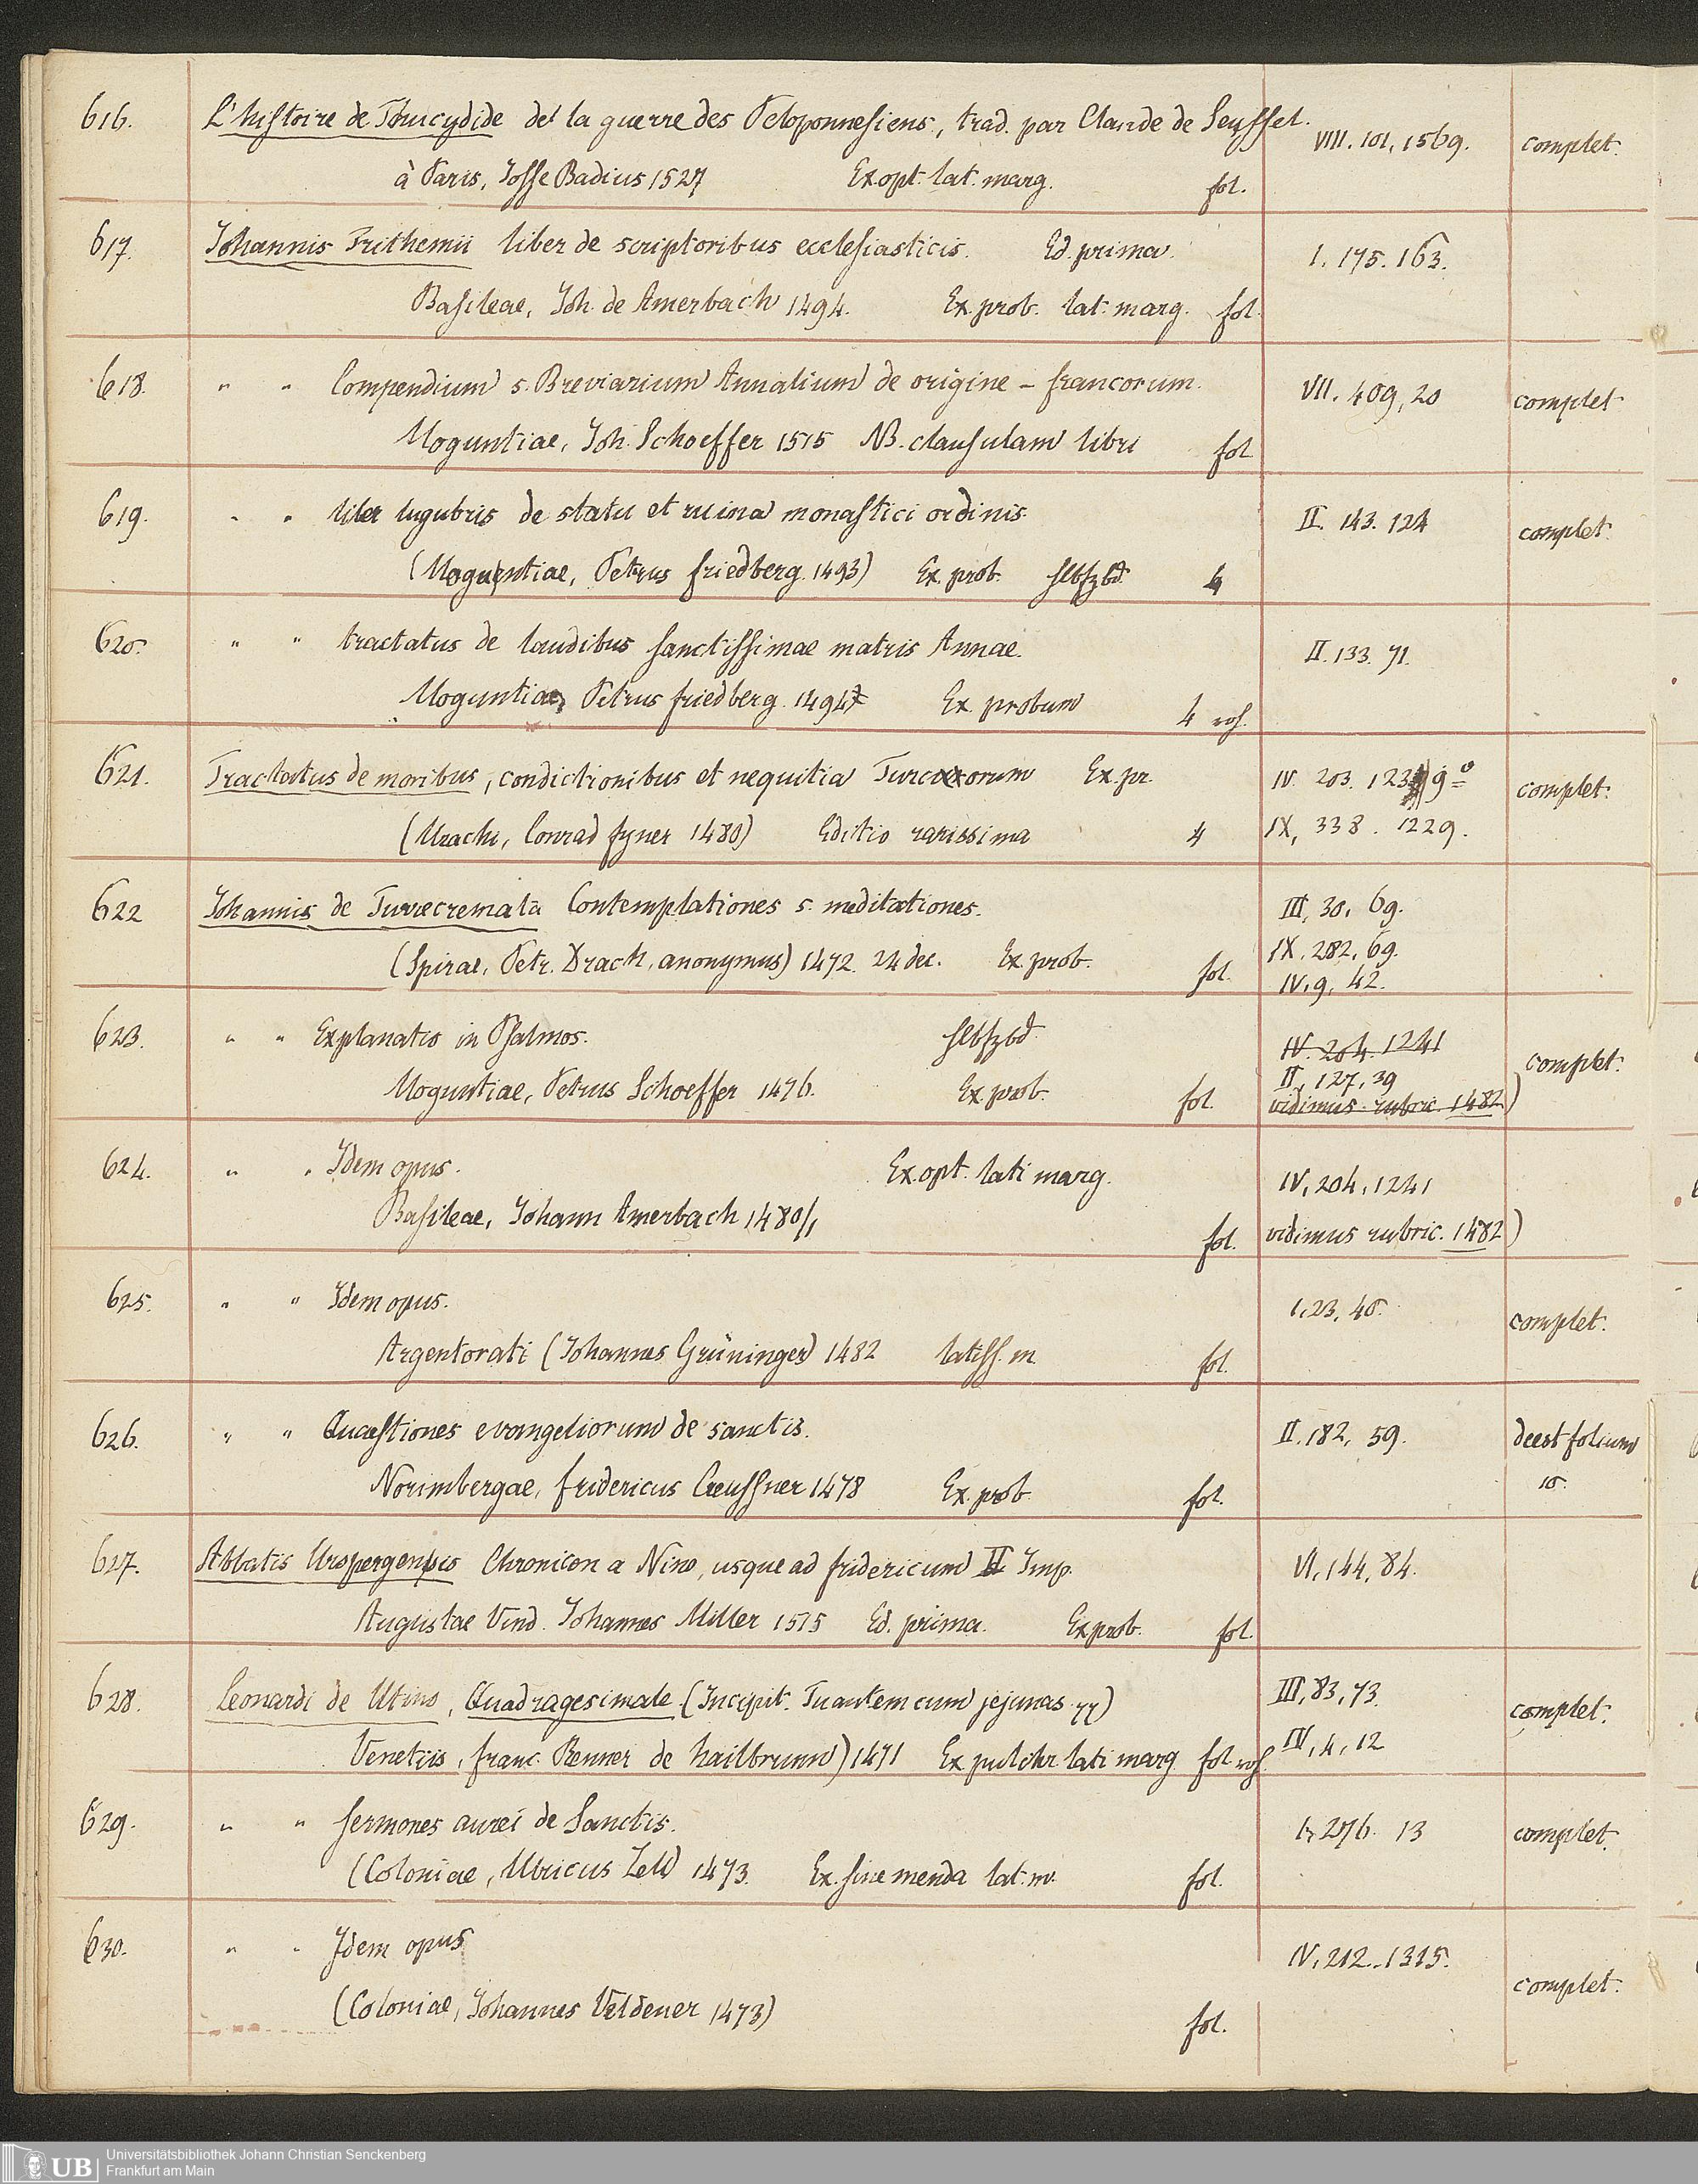 616. L'histoire de Thucydide de la guerre des Peloponnesiens, trad. par Claude de Seyssel. VIII. 101. 1569. complet.
à Paris, Josse Badius 1527 Ex opt. lat. marg. fol.
617. Johannis Trithemii liber de scriptoribus ecclesiasticis. Ed. prima. I. 175. 163.
Basileae, Joh. de Amerbach 1494. Ex. prob. lat. marg. fol.
618. " " Compendium s. Breviarium Annalium de origine – francorum. VII. 409, 20 complet
Moguntiae, Joh. Schoeffer 1515 NB. clausulam libri fol
619. " " liber lugubris de statu et ruina monastici ordinis. II. 143. 124 complet.
(Moguntiae, Petrus Friedberg. 1493) Ex. prob. Hlbfzbd. 4
620. " " tractatus de laudibus sanctissimae matris Annae. II. 133. 71.
Moguntiae, Petrus Friedberg. 1494 Ex. probum 4
621. Tractatus de moribus, condictionibus et nequitia Turcorum Ex. pr. IV. 203. 1239 complet.
(Urachi, Conrad Fyner 1480) Editio rarissima 4 IX, 338. 1229.
622 Johannis de Turrecremata Contemplationes s. meditationes. III, 30, 69.
(Spirae, Petr. Drach, anonymus) 1472. 24 dec. Ex. prob. fol. IX. 282, 69.
IV. 9, 42.
623. " " Explanatio in Psalmos. Hlbfzbd. IV. 204. 1241 complet.
Moguntiae, Petrus Schoeffer 1476. Ex. prob. fol. II, 127, 39
vidimus rubric. 1482)
624. " " Idem opus. Ex. opt. lati marg. IV, 204, 1241
Basileae, Johann Amerbach 1480/1 fol. vidimus rubric. 1482)
625. " " Idem opus. I, 23, 40. complet.
Argentorati (Johannes Grüninger) 1482 latiss. m. fol.
626. " " Quaestiones evangeliorum de sanctis. II. 182, 59. deest folium
Norimbergae, Fridericus Creussner 1478 Ex. prob. fol. 10.
627. Abbatis Urspergensis Chronicon a Nino, usque ad Fridericum II Imp. VI, 144, 84.
Augustae Vind. Johannes Miller 1515 Ed. prima. Ex prob. fol.
628. Leonardi de Utino, Quadragesimale (Incipit. Tu autem cum jejunas) III, 83, 73. complet.
Venetiis, Franc. Renner de Hailbrunn) 1471 Ex pulchr. lati marg. fol. IV, 4, 12
629. " " Sermones aurei de Sanctis. I, 276. 13 complet.
(Coloniae, Ulricus Zell) 1473. Ex. sine menda lat. m. fol.
630. " " Idem opus IV, 212. 1315. complet.
(Coloniae, Johannes Veldener 1473) fol.
UB Universitätsbibliothek Johann Christian Senckenberg
Frankfurt am Main